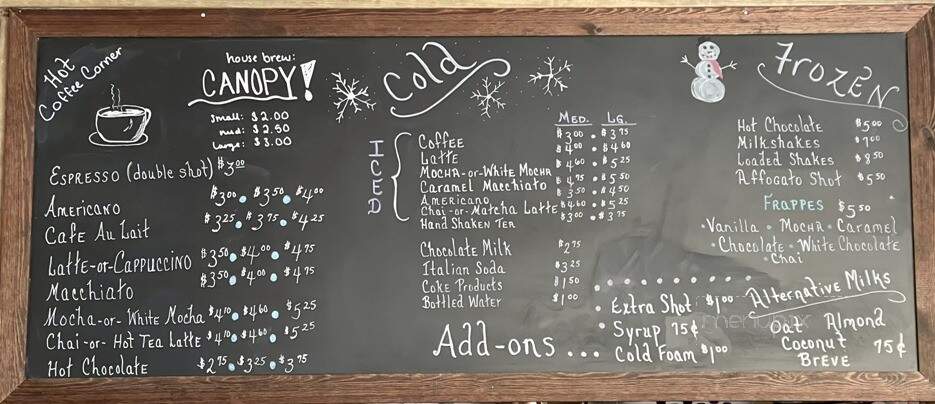 Hot
Coffee Corner
house brew:
CANOPY!
Small: $2.00
med: $2.50
Large: $3.00
ESPRESSO (double shot) $3.00
Americano $3.00 $3.50 $4.00
Cafe Au Lait $3.25 $3.75 $4.25
Latte-or-Cappuccino $3.50 $4.00 $4.75
Macchiato $3.50 $4.00 $4.75
Mocha-or-White Mocha $4.10 $4.60 $5.25
Chai-or-Hot Tea Latte $4.10 $4.60 $5.25
Hot Chocolate $2.75 $3.25 $3.75
Cold
ICED
MED. LG.
Coffee $3.00 $3.75
Latte $4.00 $4.60
Mocha-or-White Mocha $4.60 $5.25
Caramel Macchiato $4.95 $5.50
Americano $3.50 $4.50
Chai-or-Matcha Latte $4.60 $5.25
Hand Shaken Tea $3.00 $3.75
Chocolate Milk $2.75
Italian Soda $3.25
Coke Products $1.50
Bottled Water $1.00
Add-ons...
Extra Shot $1.00
Syrup 75¢
Cold Foam $1.00
Frozen
Hot Chocolate $5.00
Milkshakes $7.00
Loaded Shakes $8.50
Affogato Shot $5.50
FRAPPES $5.50
Vanilla • Mocha • Caramel
• Chocolate • White Chocolate
• Chai
Alternative Milks
Oat Almond
Coconut 75¢
Breve